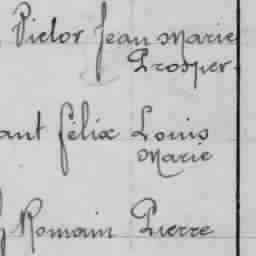 Victor Jean Marie
Prosper
ant Félix Louis
Marie
Romain Pierre